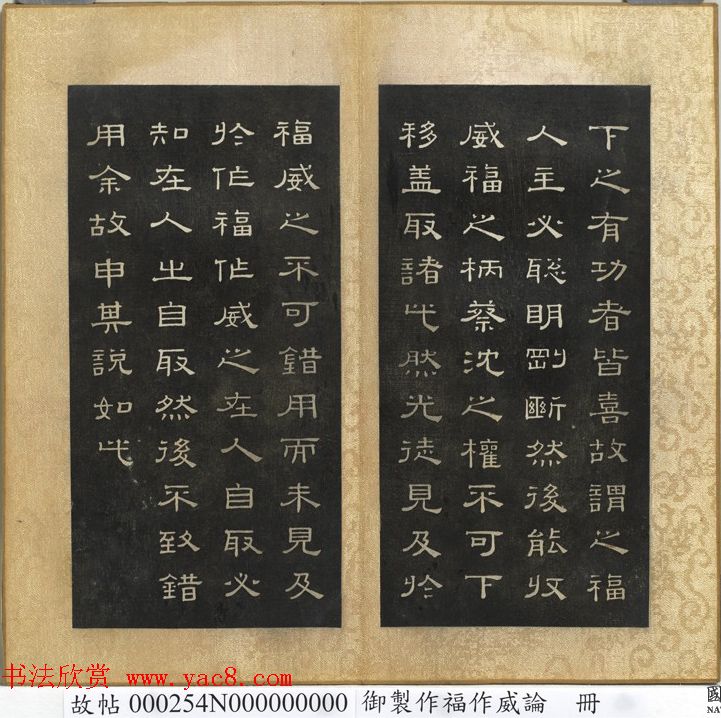 下之有功者皆喜故謂之福
人主必聡明剛斷然後能收
威福之柄蔡沈之權不可下
移盖取諸此然光徒見及於
福威之不可錯用而未見及
於作福作威之在人自取必
知在人之自取然後不致錯
用余故申其說如此
书法欣赏 www.yac8.com
故帖 000254N000000000 御製作福作威論 冊
國
NA